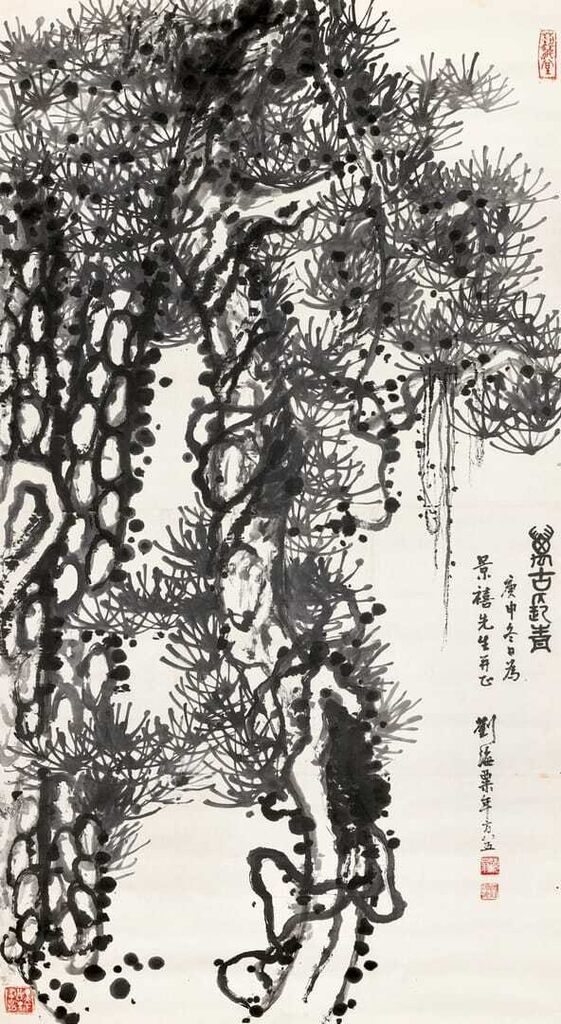 萬古長青
庚申冬日為
景禧先生并正 劉海粟年方八五